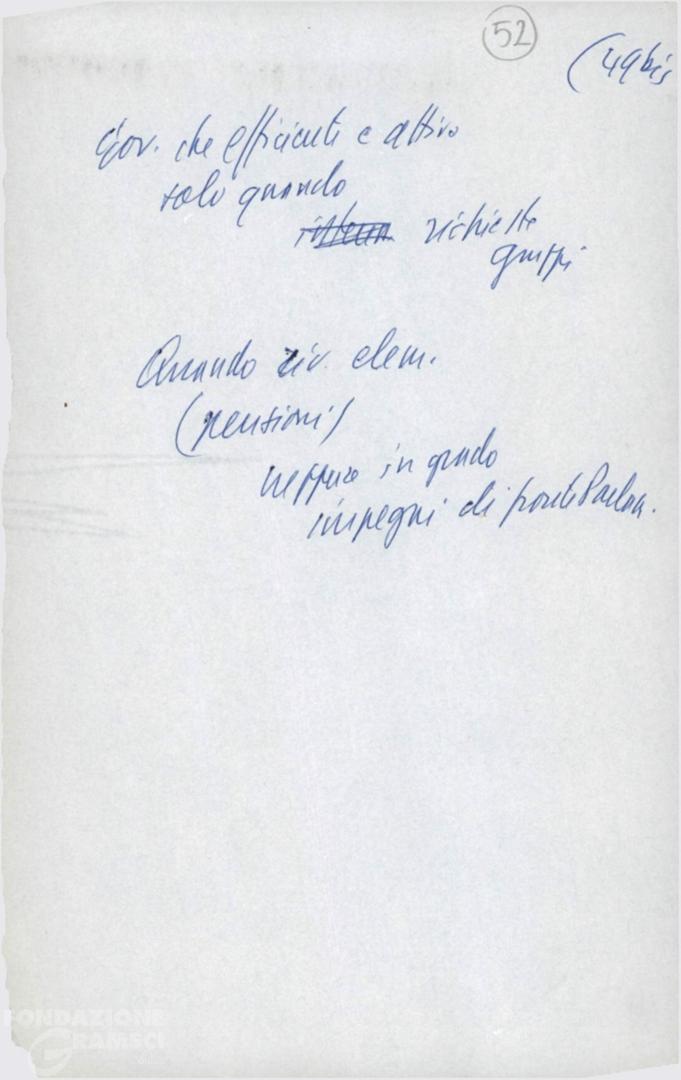 52
(49bis
Gov. che efficiente e attivo
solo quando
richieste
gruppi
Quando riv. elem.
(pensioni)
neppure in grado
impegni di fronte Parlam.
FONDAZIONE
GRAMSCI